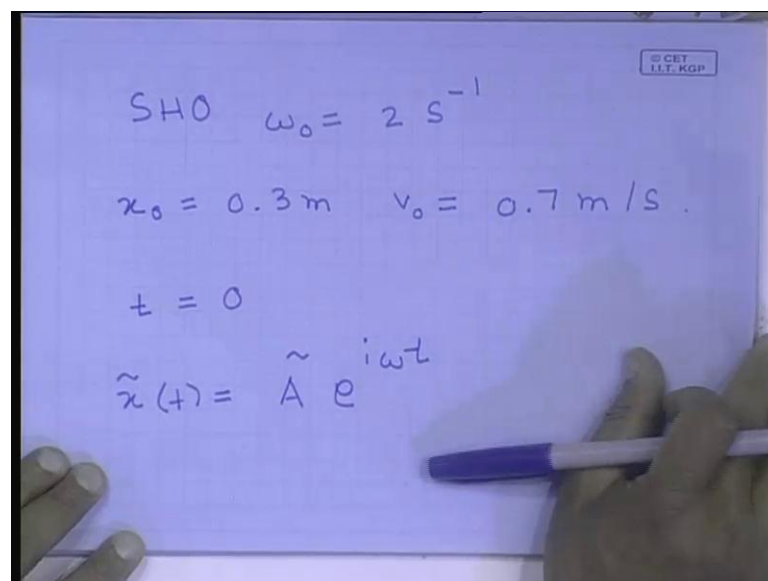 © CET
I.I.T. KGP
SHO ω₀ = 2 s⁻¹
x₀ = 0.3 m v₀ = 0.7 m/s.
t = 0
x̃(t) = Ã e^{iωt}